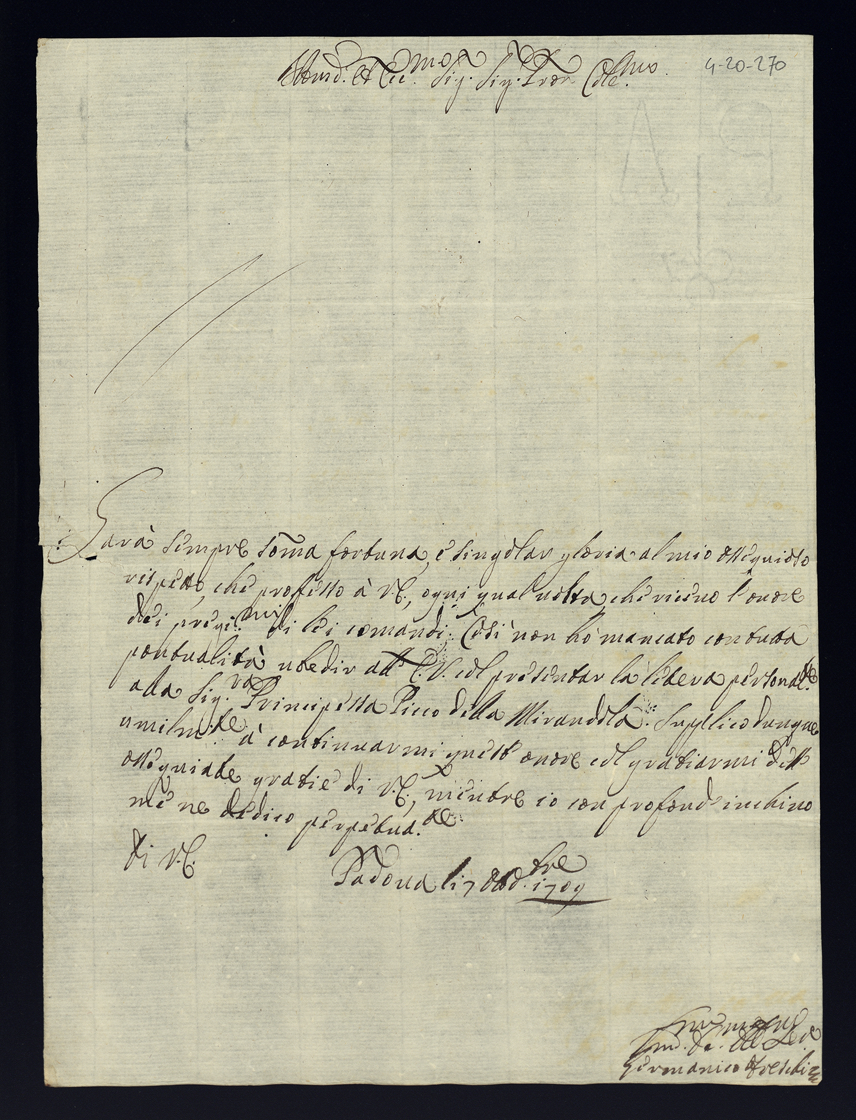 4-20-270
Sig. Sig. Pron Col.mo
Sarà sempre somma fortuna, e singolar gloria al mio ossequioso
rispetto, che professo à V.E., ogni qual uolta, che riceuo l'onore
dei pregi.mi di lei comandi. Così non hò mancato con tutta
pontualità ubedir all' E.V. col presentar la lettera personal.te
alla Sig.ra Principessa Pico della Mirandola. Supplico dunque
umilm.te à continuarmi quest' onore col gratiarmi dell
ossequiate gratie di V.E., mentre io con profond' inchino
me ne dedico perpetuam.te
di V.E.
Padoua li 7 1709
Germanico